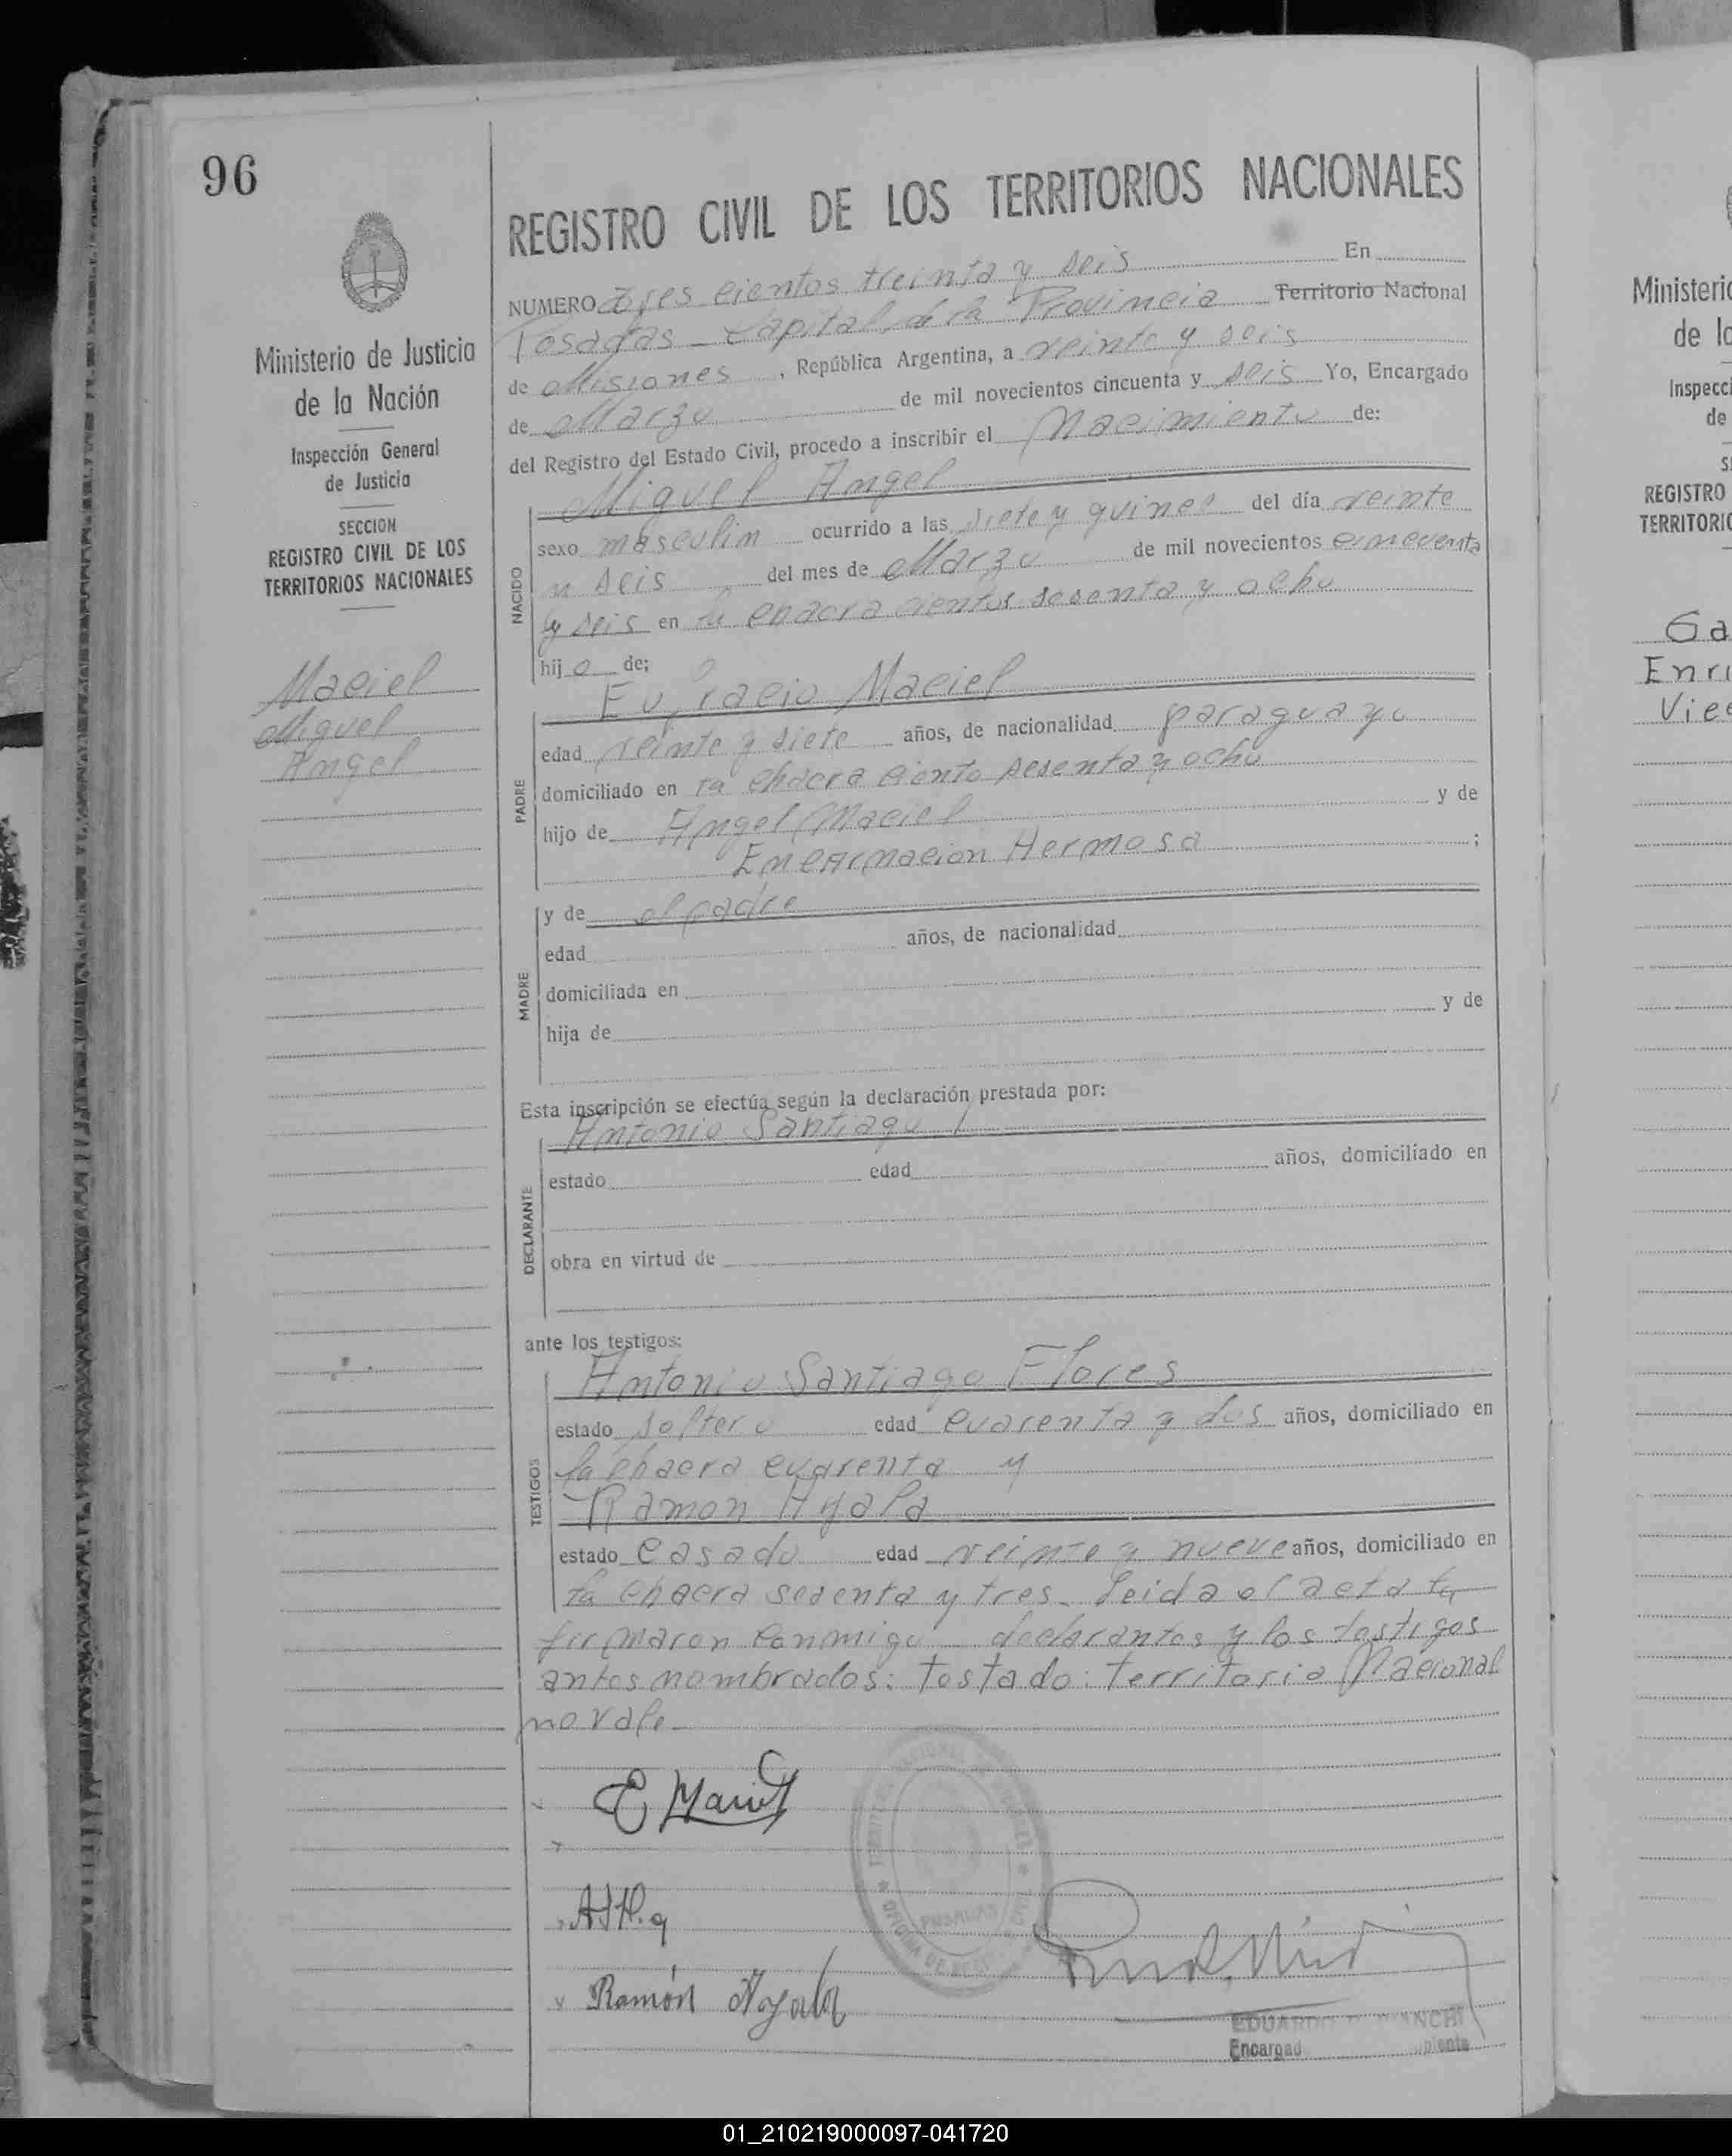 96
Ministerio de Justicia
de la Nación
Inspección General
de Justicia
SECCION
REGISTRO CIVIL DE LOS
TERRITORIOS NACIONALES
Maciel
Miguel
Angel
REGISTRO CIVIL DE LOS TERRITORIOS NACIONALES
NUMERO Tres cientos treinta y seis En
Posadas - Capital de la Provincia Territorio Nacional
de Misiones, República Argentina, a veinte y seis
de Marzo de mil novecientos cincuenta y seis Yo, Encargado
del Registro del Estado Civil, procedo a inscribir el Nacimiento de:
Miguel Angel
NACIDO
sexo masculin ocurrido a las siete y quince del día veinte
y seis del mes de Marzo de mil novecientos cincuenta
y seis en la chacra ciento sesenta y ocho
hijo de;
Maciel
PADRE
edad veinte y siete años, de nacionalidad paraguayo
domiciliado en la chacra ciento sesenta y ocho
hijo de Angel Maciel y de
Encarnacion Hermosa ;
MADRE
y de el padre
edad años, de nacionalidad
domiciliada en
hija de y de
Esta inscripción se efectúa según la declaración prestada por:
Antonio Santiago
DECLARANTE
estado edad años, domiciliado en
obra en virtud de
ante los testigos:
Antonio Santiago Flores
TESTIGOS
estado soltero edad cuarenta y dos años, domiciliado en
la chacra cuarenta y
Ramon Ayala
estado casado edad veinte y nueve años, domiciliado en
la chacra sesenta y tres. Leida el acta la
firmaron conmigo declarantes y los testigos
antes nombrados: testado: territorio Nacional
no vale
E Maciel
Ramón Ayala
POSADAS
EDUARDO
Encargad
Ministerio
REGISTRO
Ga
Enri
Vice
01_210219000097-041720